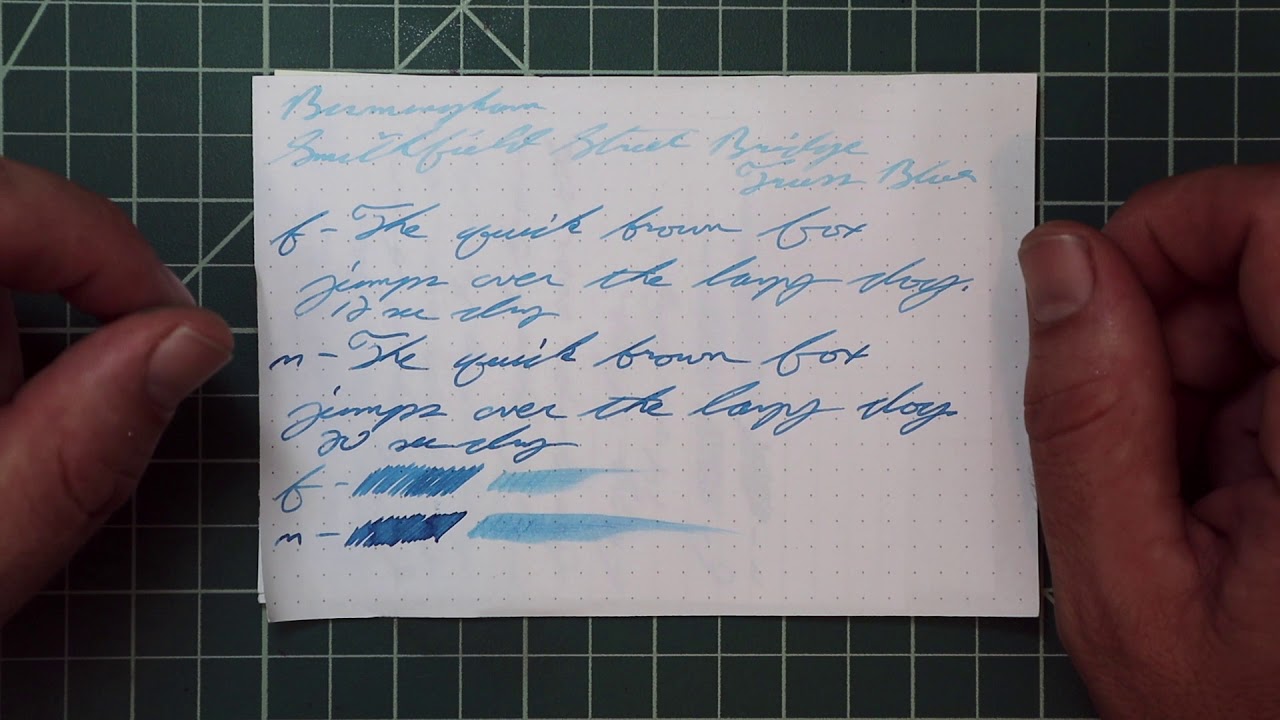 Birmingham
Smithfield Street Bridge
Truss Blue
f - The quick brown fox
jumps over the lazy dog.
12 sec dry
m - The quick brown fox
jumps over the lazy dog.
20 sec dry
f -
m -